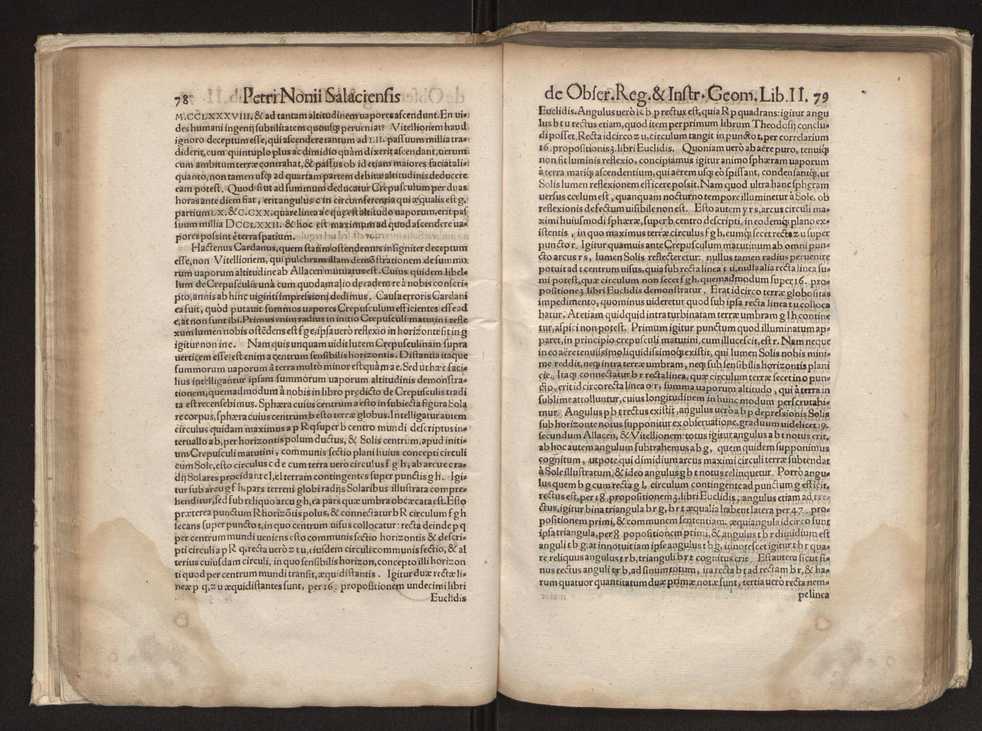 78 Petri Nonii Salaciensis
M.CCLXXXVIII. & ad tantam altitudinem vapores ascendunt. En vi-
des humani ingenij subtilitatem quousq; perueniat? Vitellionem haud
ignoro deceptum esse, qui ascendere tantum ad LII. passuum millia tra-
diderit, cum quintuplo plus ac dimidio quàm dixerit ascendant, verum
cum ambitum terræ contrahat, & passus ob id etiam maiores faciat ali-
quanto, non tamen usq; ad quartam partem debitæ altitudinis deducere
eam potest. Quod si ut ad summum deducatur Crepusculum per duas
horas ante diem fiat, erit angulus c in circumferentia qui æqualis est g,
partium LX. & C.CXX. quare linea a e quæ est altitudo vaporum, erit pas
suum millia DCCLXXII. & hoc est maximum ad quod ascendere va-
pores possint è terra spatium.
Hactenus Cardanus, quem statim ostendemus insigniter deceptum
esse, non Vitellionem, qui pulchram illam demonstrationem de summo
rum vaporum altitudine ab Allacen mutuatus est. Cuius quidem libel-
lum de Crepusculis unà cum quodam alio de eadem re à nobis conscri-
pto, annis ab hinc viginti impressioni dedimus. Causa erroris Cardani
ea fuit, quòd putauit summos vapores Crepusculum efficientes esse ad
e, at non sunt ibi. Primus enim radius in initio Crepusculi matutini refle
xum lumen nobis ostēdens est f g e, ipsa uerò reflexio in horizonte fit in g
igitur non in e. Nam quis unquam vidit lutem Crepusculinam supra
verticem esse: est enim a centrum sensibilis horizontis. Distantia itaque
summorum vaporum à terra multo minor est quàm a e. Sed ut hæc faci-
lius intelligantur ipsam summorum vaporum altitudinis demonstra-
tionem, quemadmodum à nobis in libro prędicto de Crepusculis tradi
ta est recensebimus. Sphæra cuius centrum a esto in subiecta figura Sola
re corpus, sphæra cuius centrum b esto terræ globus. Intelligatur autem
circulus quidam maximus a p R q super b centro mundi descriptus in-
teruallo a b, per horizontis polum ductus, & Solis centrum, apud initi-
um Crepusculi matutini, communis sectio plani huius concepti circuli
cum Sole, esto circulus c d e cum terra vero circulus f g h, ab arcu e c ra-
dij Solares procidant c l, e l terram contingentes super punctis g h. Igi-
tur sub arcu g f h, pars terreni globi radijs Solaribus illustrata compre-
henditur, sed sub reliquo arcu g h, ea pars quæ umbra obcæcata est. Esto
præterea punctum R horizontis polus, & connectatur b R circulum f g h
secans super puncto t, in quo centrum uisus collocatur: recta deinde p q
per centrum mundi ueniens esto communis sectio horizontis & descri-
pti circuli a p R q, recta uerò z t u, eiusdem circuli communis sectio, & al
terius cuiusdam circuli, in quo sensibilis horizon, concepto illi horizon
ti quod per centrum mundi transit, æquidistantis. Igitur duæ rectæ li-
neæ p q, z u æquidistantes sunt, per 16. propositionem undecimi libri
Euclidis
de Obser. Reg. & Instr. Geom. Lib. II. 79
Euclidis. Angulus uerò t c b p rectus est, quia R p quadrans: igitur angu
lus b t u rectus etiam, quod item per primum librum Theodosij conclu-
di posset. Recta idcirco z u, circulum tangit in puncto t, per correlarium
16. propositionis 3. libri Euclidis. Quoniam uerò ab aere puro, tenuiq;
non fit luminis reflexio, concipiamus igitur animo sphæram uaporum
à terra matiq; ascendentium, qui aërem usq; eò spissant, condensantq;, ut
Solis lumen reflexionem efficere possit. Nam quod ultra hanc sphæram
versus cœlum est, quanquam nocturno tempore illuminetur à Sole, ob
reflexionis defectum uisibile non est. Esto autem y r s, arcus circuli ma-
ximi huiusmodi sphæræ, super b centro descripti, in eodemq; plano ex-
istentis, in quo maximus terræ circulus f g h, cumq; secet recta z u super
puncto r. Igitur quamuis ante Crepusculum matutinum ab omni pun-
cto arcus r s, lumen Solis reflecteretur, nullus tamen radius peruenire
potuit ad t centrum uisus, quia sub recta linea t u, nulla alia recta linea su-
mi potest, quæ circulum non secet f g h, quemadmodum super 16. pro-
positione 3. libri Euclidis demonstratur. Erat idcirco terræ globositas
impedimento, quominus uideretur quod sub ipsa recta linea t u colloca
batur. At etiam quidquid intra turbinatam terræ umbram g l h contine
tur, aspici non potest. Primum igitur punctum quod illuminatum ap-
paret, in principio crepusculi matutini, cum illucescit, est r. Nam neque
in eo aëre tenuissimo liquidissimoq; existit, qui lumen Solis nobis mini-
me reddit, neq; intra terræ umbram, neq; sub sensibilis horizontis plani
cie. Itaq; connectatur b r recta linea, quæ circulum terræ secet in o pun-
cto, erit idcirco recta linea o r, summa uaporum altitudo, qui à terra in
sublime attolluntur, cuius longitudinem in hunc modum perscrutabi-
mur. Angulus p b t rectus existit, angulus uerò a b p depressionis Solis
sub horizonte notus supponitur ex obseruatione, graduum uidelicet 19.
secundum Allacen, & Vitellionem: totus igitur angulus a b t notus erit,
ab hoc autem angulum subtrahemus a b g, quem quidem supponimus
cognitum, utpote qui dimidium arcus maximi circuli terræ subtendat
à Sole illustratum, & ideo angulus g b t notus relinquetur. Porrò angu-
lus quem b g cum recta g l circulum contingente ad punctum g efficit,
rectus est, per 18. propositionem 3. libri Euclidis, angulus etiam ad t re-
ctus, igitur bina triangula b r g, b r t æqualia habent latera per 47. pro-
positionem primi, & communem sententiam. æquiangula idcirco sunt
ipsa triangula, per 8 propositionem primi, & angulus t b r dimidium est
anguli t b g, at innotuit iam ipse angulus t b g, innotescet igitur t b r qua-
re reliquus angulus t r b, trianguli b r t cognitus erit. Est autem sicut si-
nus rectus anguli t r b, ad sinum totum, ita recta b t ad rectam b r, & ha-
rum quatuor quantitatum duæ primæ notæ sunt, tertia uerò recta nem-
pe linea